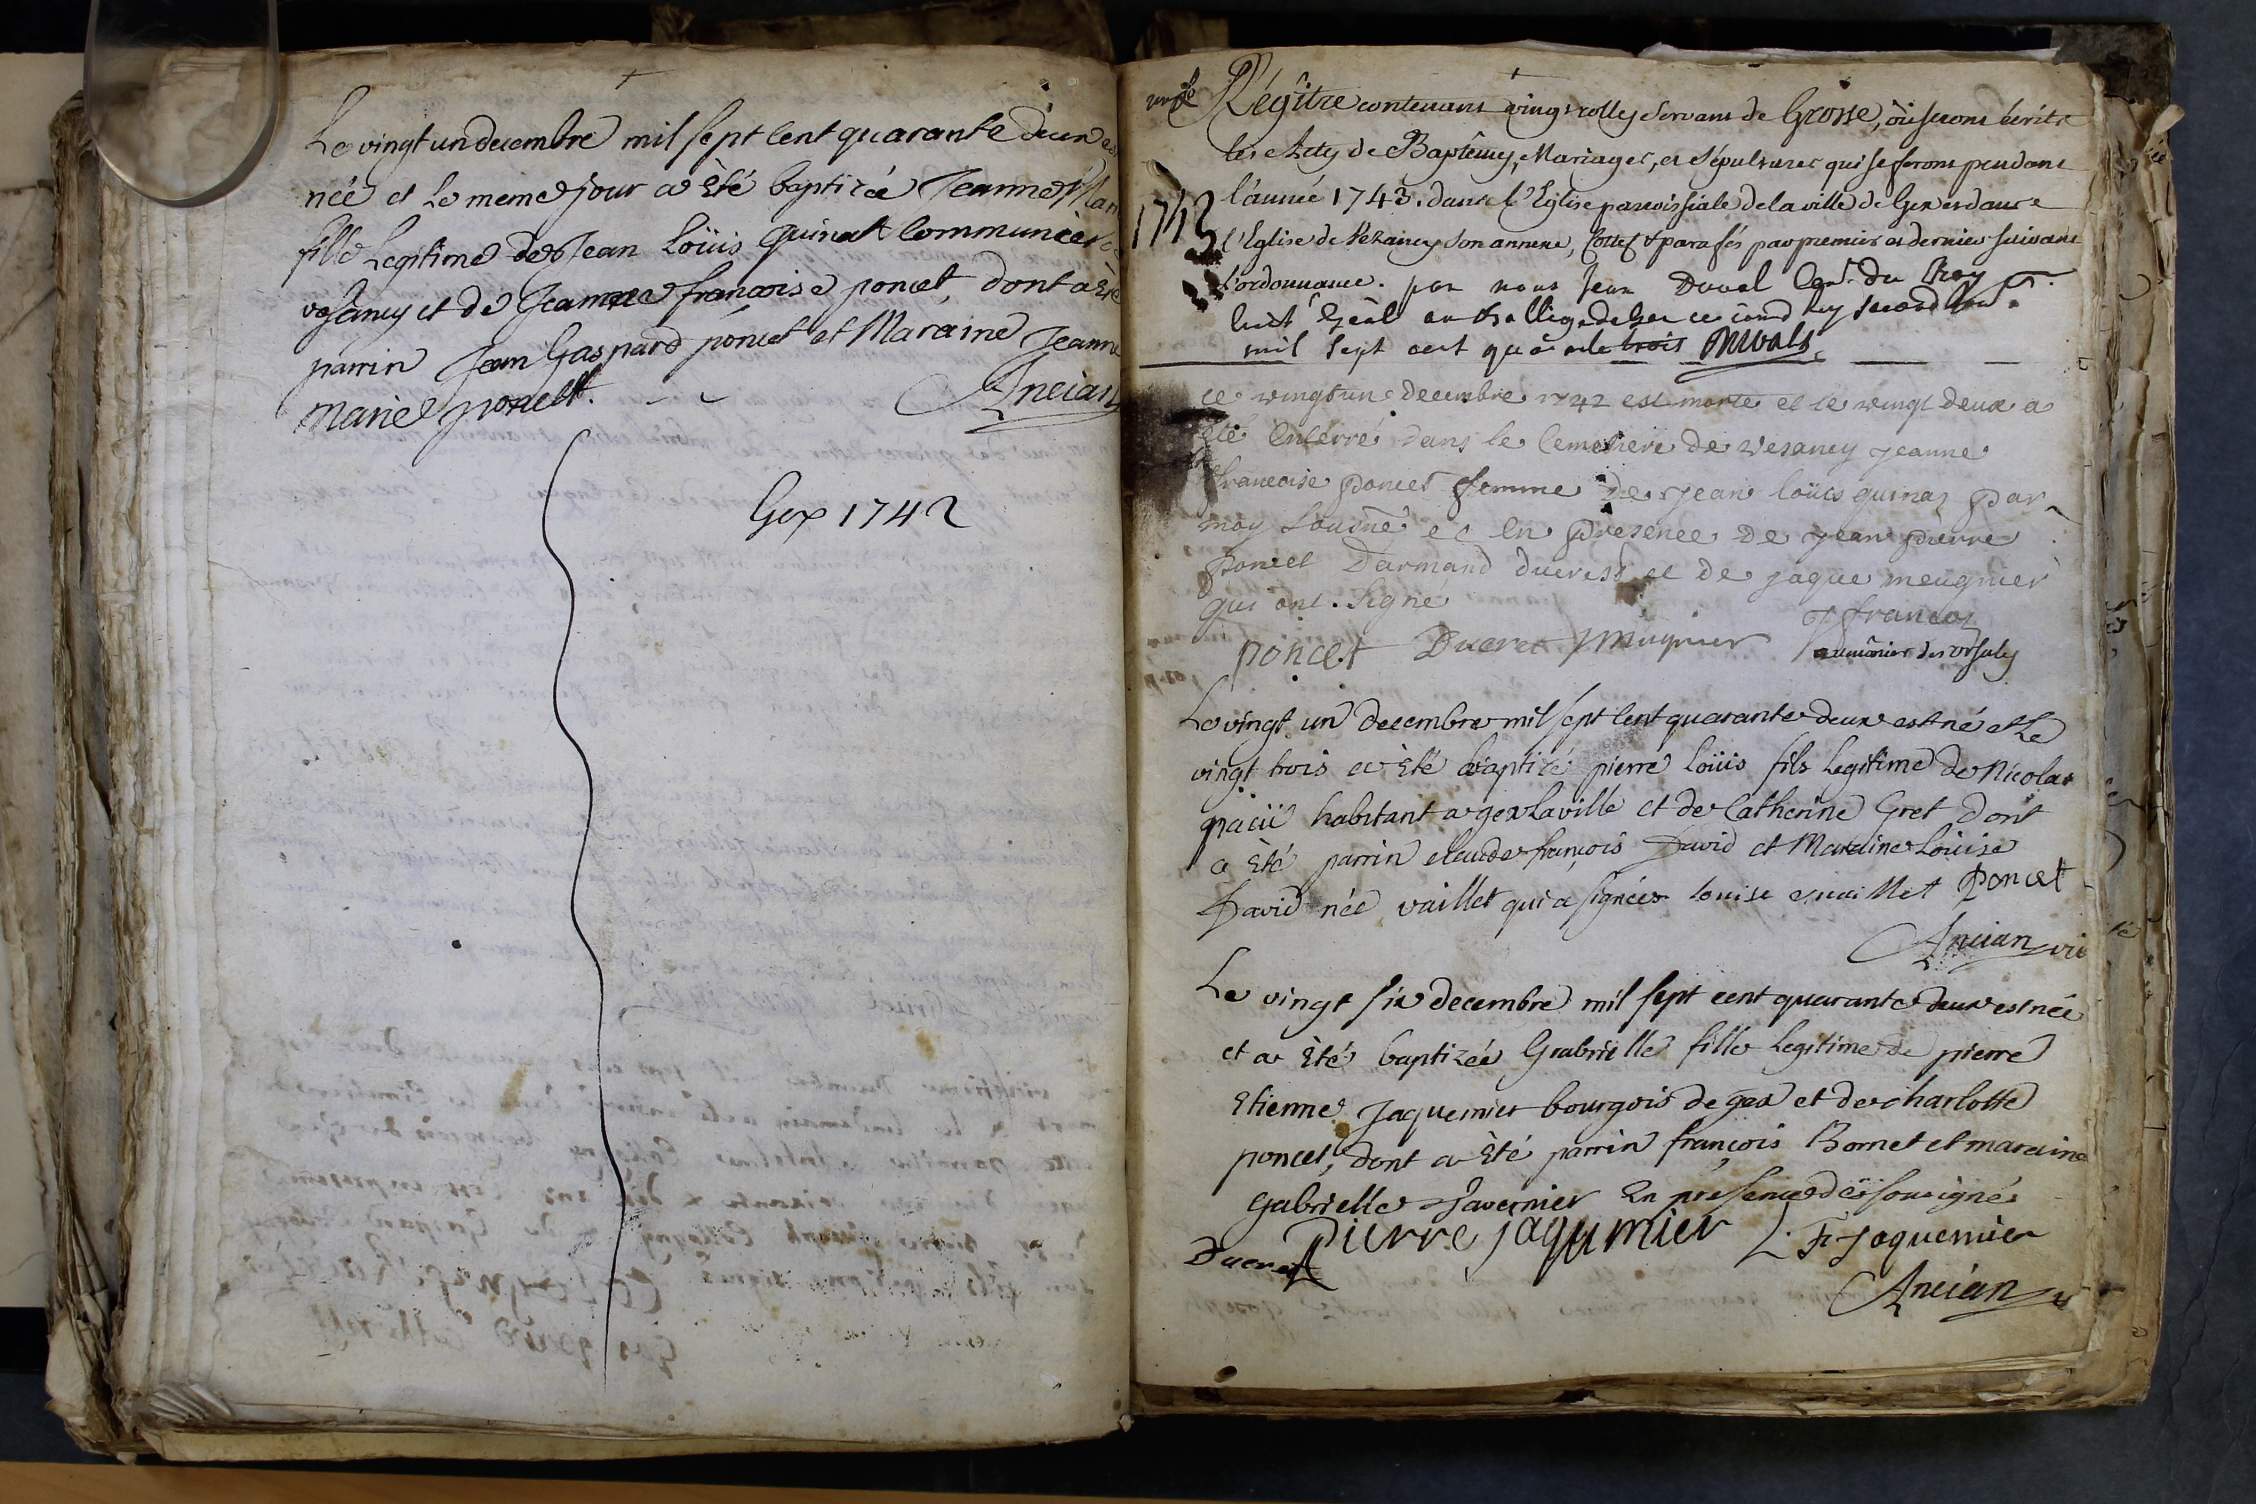 Le vingt un decembre mil sept cent quarante deux est
née et le meme jour a Eté baptizée Jeanne
fille Legitime de Jean Loüis quinat Communier
vesancy et de Jeanne françoise poncet, dont a Eté
parrin Jean Gaspard poncet et Maraine Jeanne
Marie poncet. Ancian
Gex 1742
Régître contenant vingt rolles servant de Grosse, où seront écrits
les Actes de Baptêmes, Mariages, et Sépultures qui se feront pendant
1743
l'année 1743. dans l'Eglise paroissiale de la ville de Gex et dans
l'Eglise de Vezancy son annexe, Cottés & parafés par premier et dernier suivant
l'ordonnance. par nous Jean Duval Con.er du Roy
Lieut Gēal au Balliage de Gex ce
mil sept cent quarante trois Duval
le vingt un decembre 1742 est morte et le vingt deux a
été enterré dans le Cemetiere de vesancy jeanne
francoise poncet femme de jean loüis quinaz par
moy sousné et en presence de jean pierre
poncet Darmand ducrest et de jaque meugnier
qui ont signé
poncet Ducret J Mugnier françoz
aumônier des Ursules
Le vingt un decembre mil sept cent quarante deux est né et Le
vingt trois a Eté baptizé pierre Loüis fils Legitime de Nicolas
pacii habitant a gex la ville et de Catherine Gret dont
a Eté parrin claude françois David et Maraine Loüise
David née vaillet qui a signée Louise vaillet Poncet
Ancian vic
Le vingt six decembre mil sept cent quarante deux est née
et a Eté baptizée Grabrielle fille Legitime de pierre
Etienne Jaquemier bourgois de gex et de charlotte
poncet, dont a Eté parrin françois Bornet et maraine
gabrielle Tavernier En presence des sousignés
Ducret Pierre jaqumier L. F. Jaquemier
Ancian